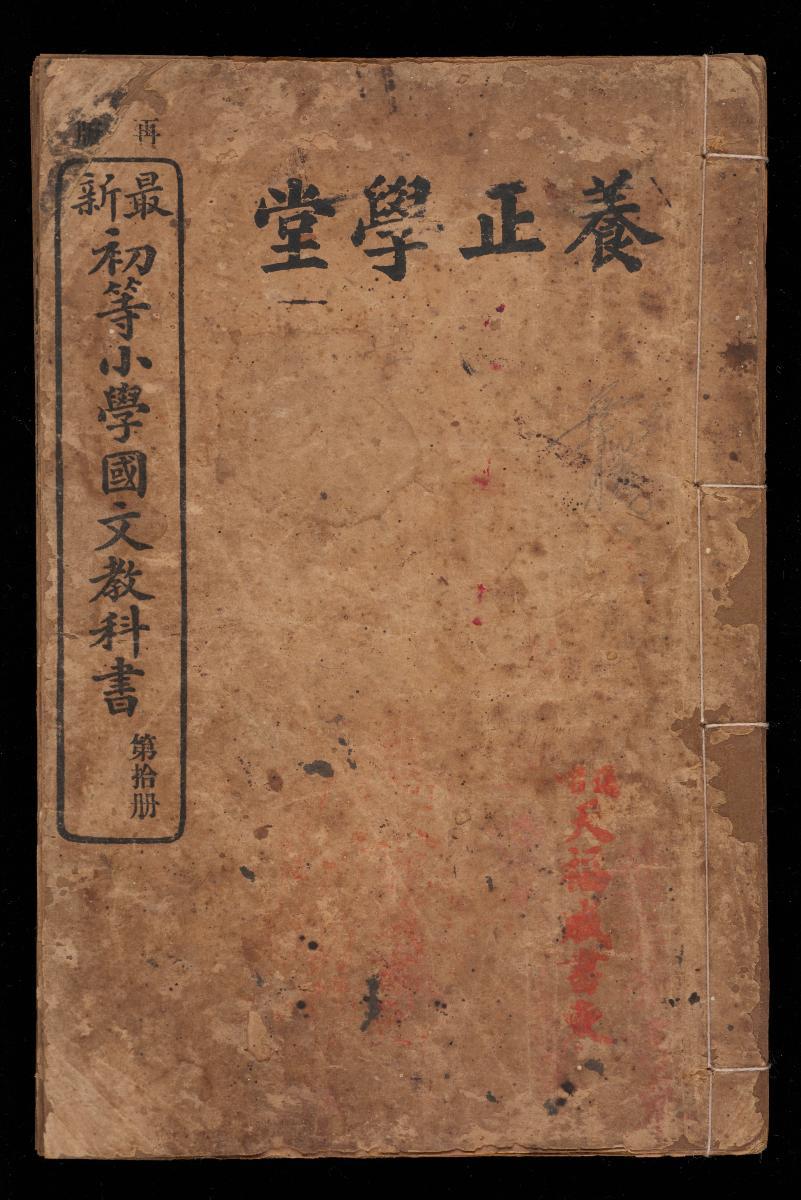 養正學堂
再版
最新
初等小學國文教科書
第拾册
天福成書